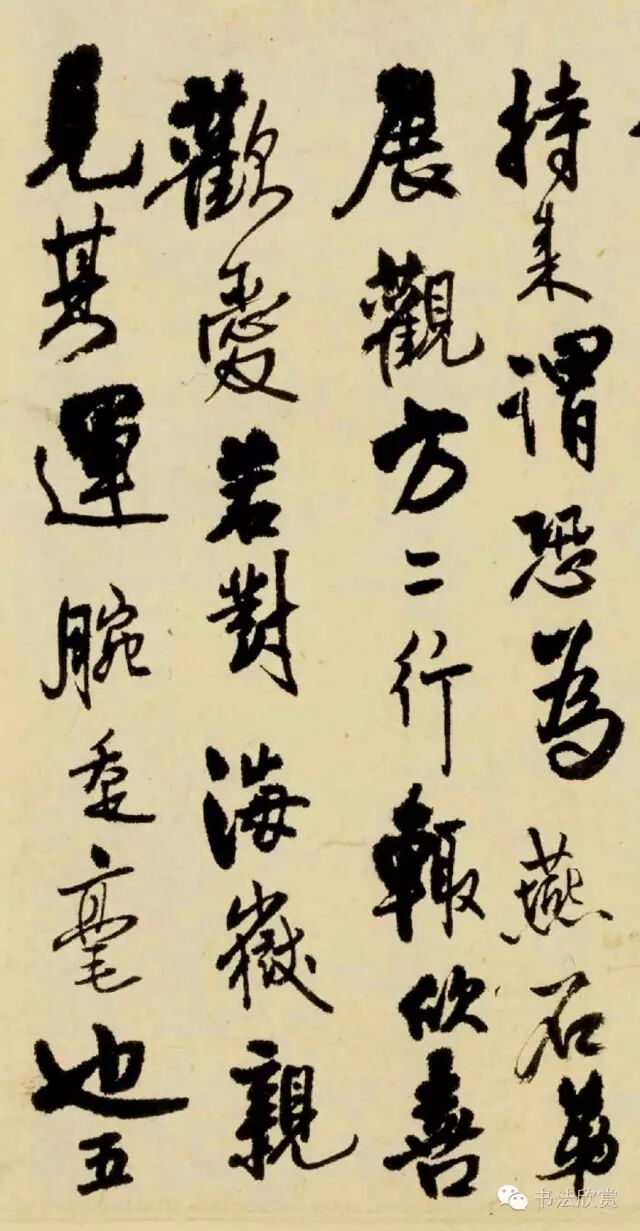 持来謂恐為燕石第
展觀方二行輒欣喜
歡愛若對海嶽親
見其運腕垂毫也五
书法欣赏